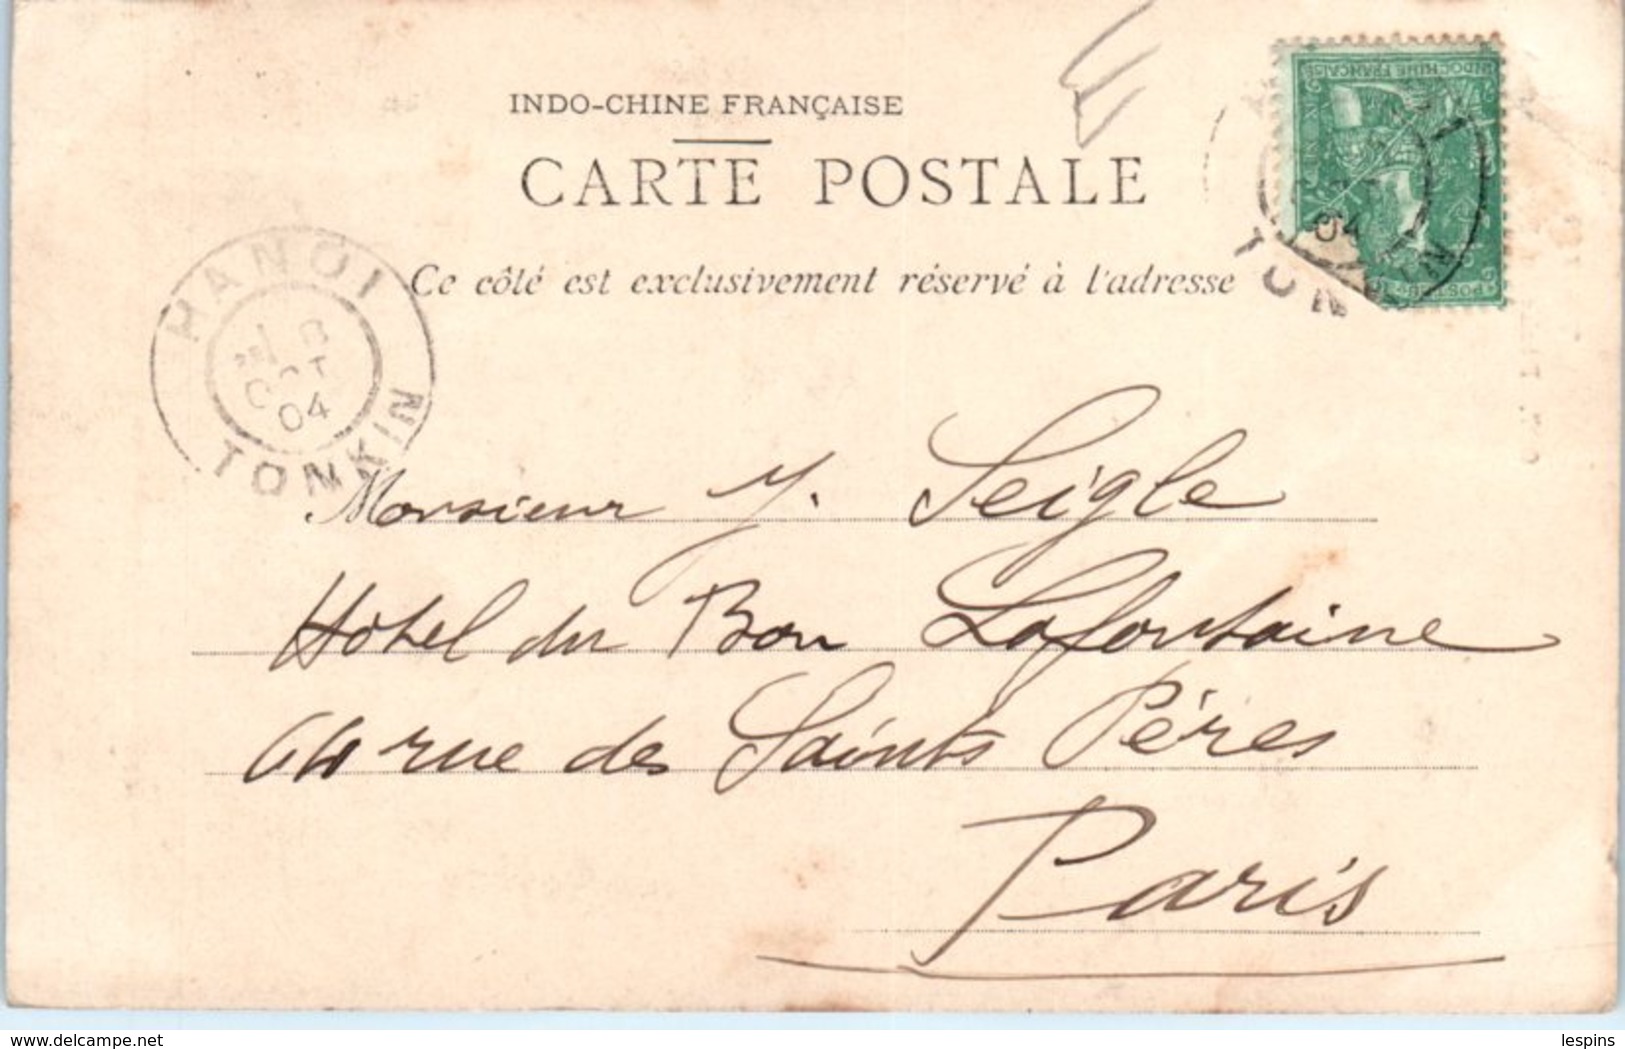 INDO-CHINE FRANÇAISE
CARTE POSTALE
Ce côté est exclusivement réservé à l'adresse
INDOCHINE FRANÇAISE
POSTES
04
TONKIN
HANOI
8
OCT
04
TONKIN
Monsieur J. Seigle
Hôtel du Bon Lafontaine
64 rue des Saints Pères
Paris
www.delcampe.net
lespins